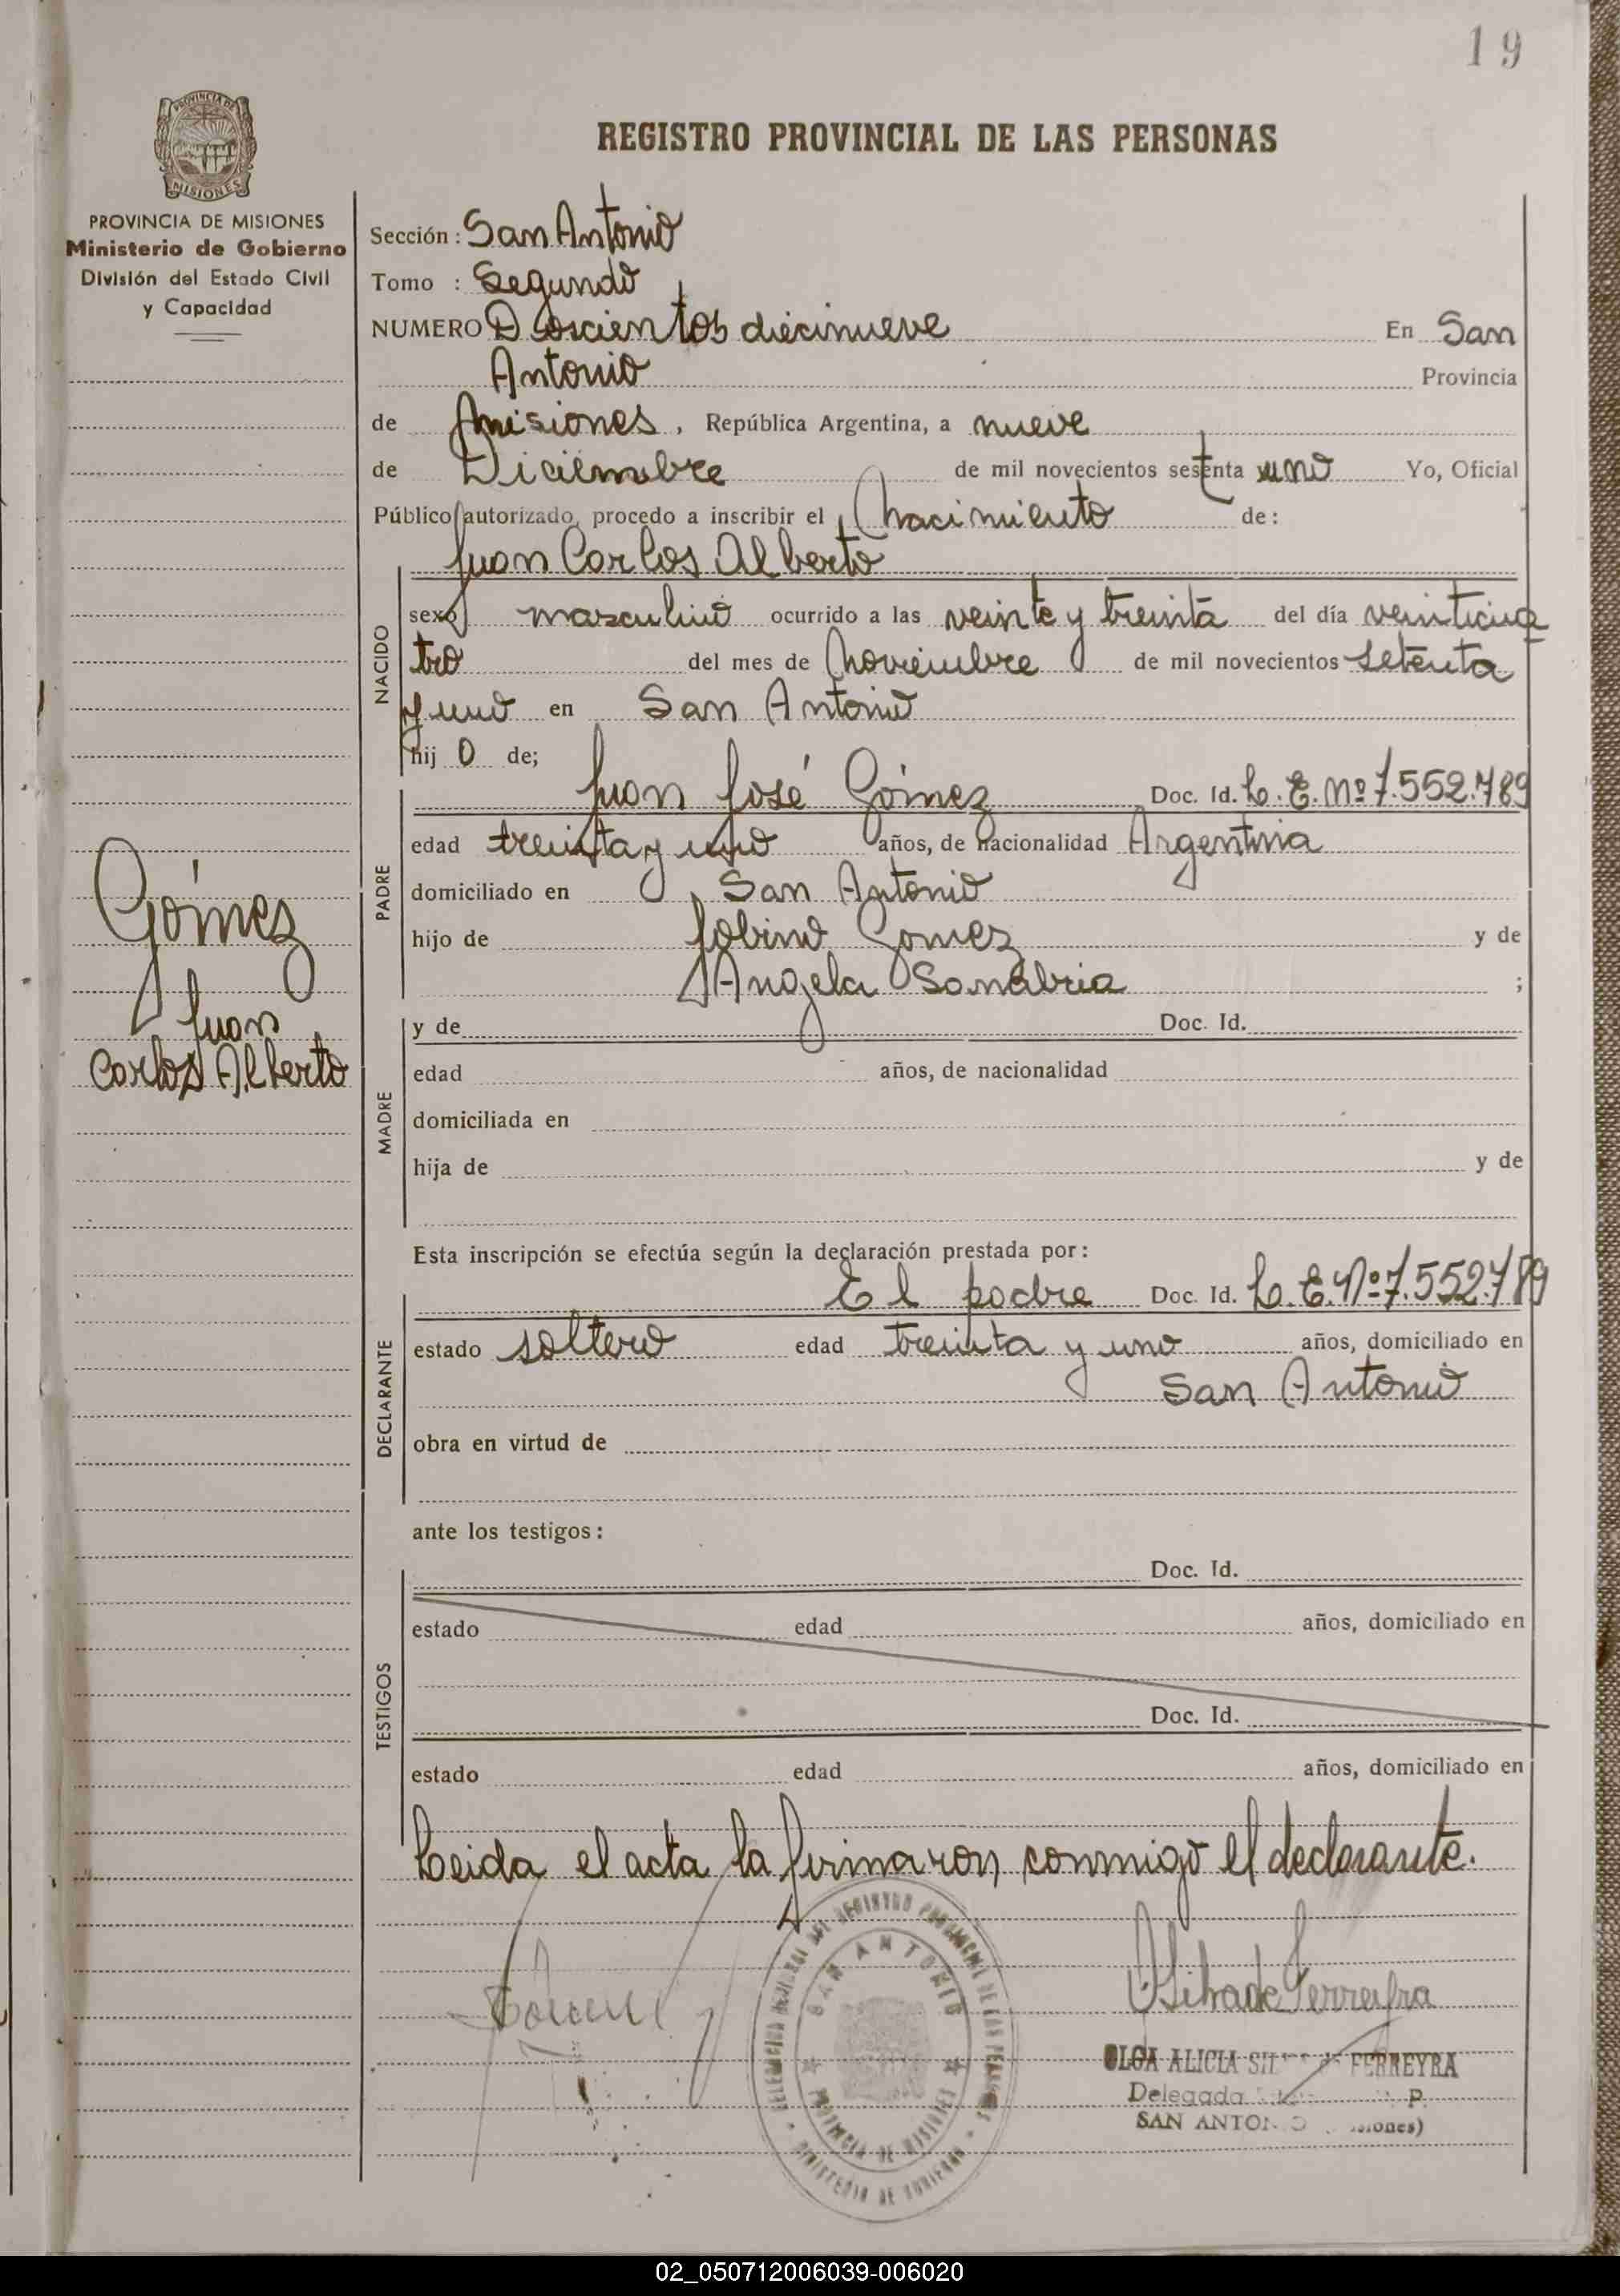 19
PROVINCIA DE
MISIONES
PROVINCIA DE MISIONES
Ministerio de Gobierno
División del Estado Civil
y Capacidad
REGISTRO PROVINCIAL DE LAS PERSONAS
Sección: San Antonio
Tomo : Segundo
NUMERO Doscientos diecinueve En San
Antonio Provincia
de Misiones, República Argentina, a nueve
de Diciembre de mil novecientos setenta uno Yo, Oficial
Público autorizado, procedo a inscribir el Nacimiento de:
Juan Carlos Alberto
NACIDO
sexo masculino ocurrido a las veinte y treinta del día veinticua
tro del mes de Noviembre de mil novecientos setenta
y uno en San Antonio
hijo de;
PADRE
Juan José Gómez Doc. Id. L.E. Nº 7.552.789
edad treinta y uno años, de nacionalidad Argentina
domiciliado en San Antonio
hijo de Gomez y de
Angela Sanabria ;
Gómez
Juan
Carlos Alberto
MADRE
y de Doc. Id.
edad años, de nacionalidad
domiciliada en
hija de y de
Esta inscripción se efectúa según la declaración prestada por:
DECLARANTE
El padre Doc. Id. L.E. Nº 7.552.789
estado soltero edad treinta y uno años, domiciliado en
San Antonio
obra en virtud de
ante los testigos:
TESTIGOS
Doc. Id.
estado edad años, domiciliado en
Doc. Id.
estado edad años, domiciliado en
Leida el acta la firmaron conmigo el declarante.
SAN ANTONIO
PROVINCIA DE MISIONES
MINISTERIO DE GOBIERNO
OLGA ALICIA DE FERREYRA
Delegada
SAN ANTONIO
02_050712006039-006020